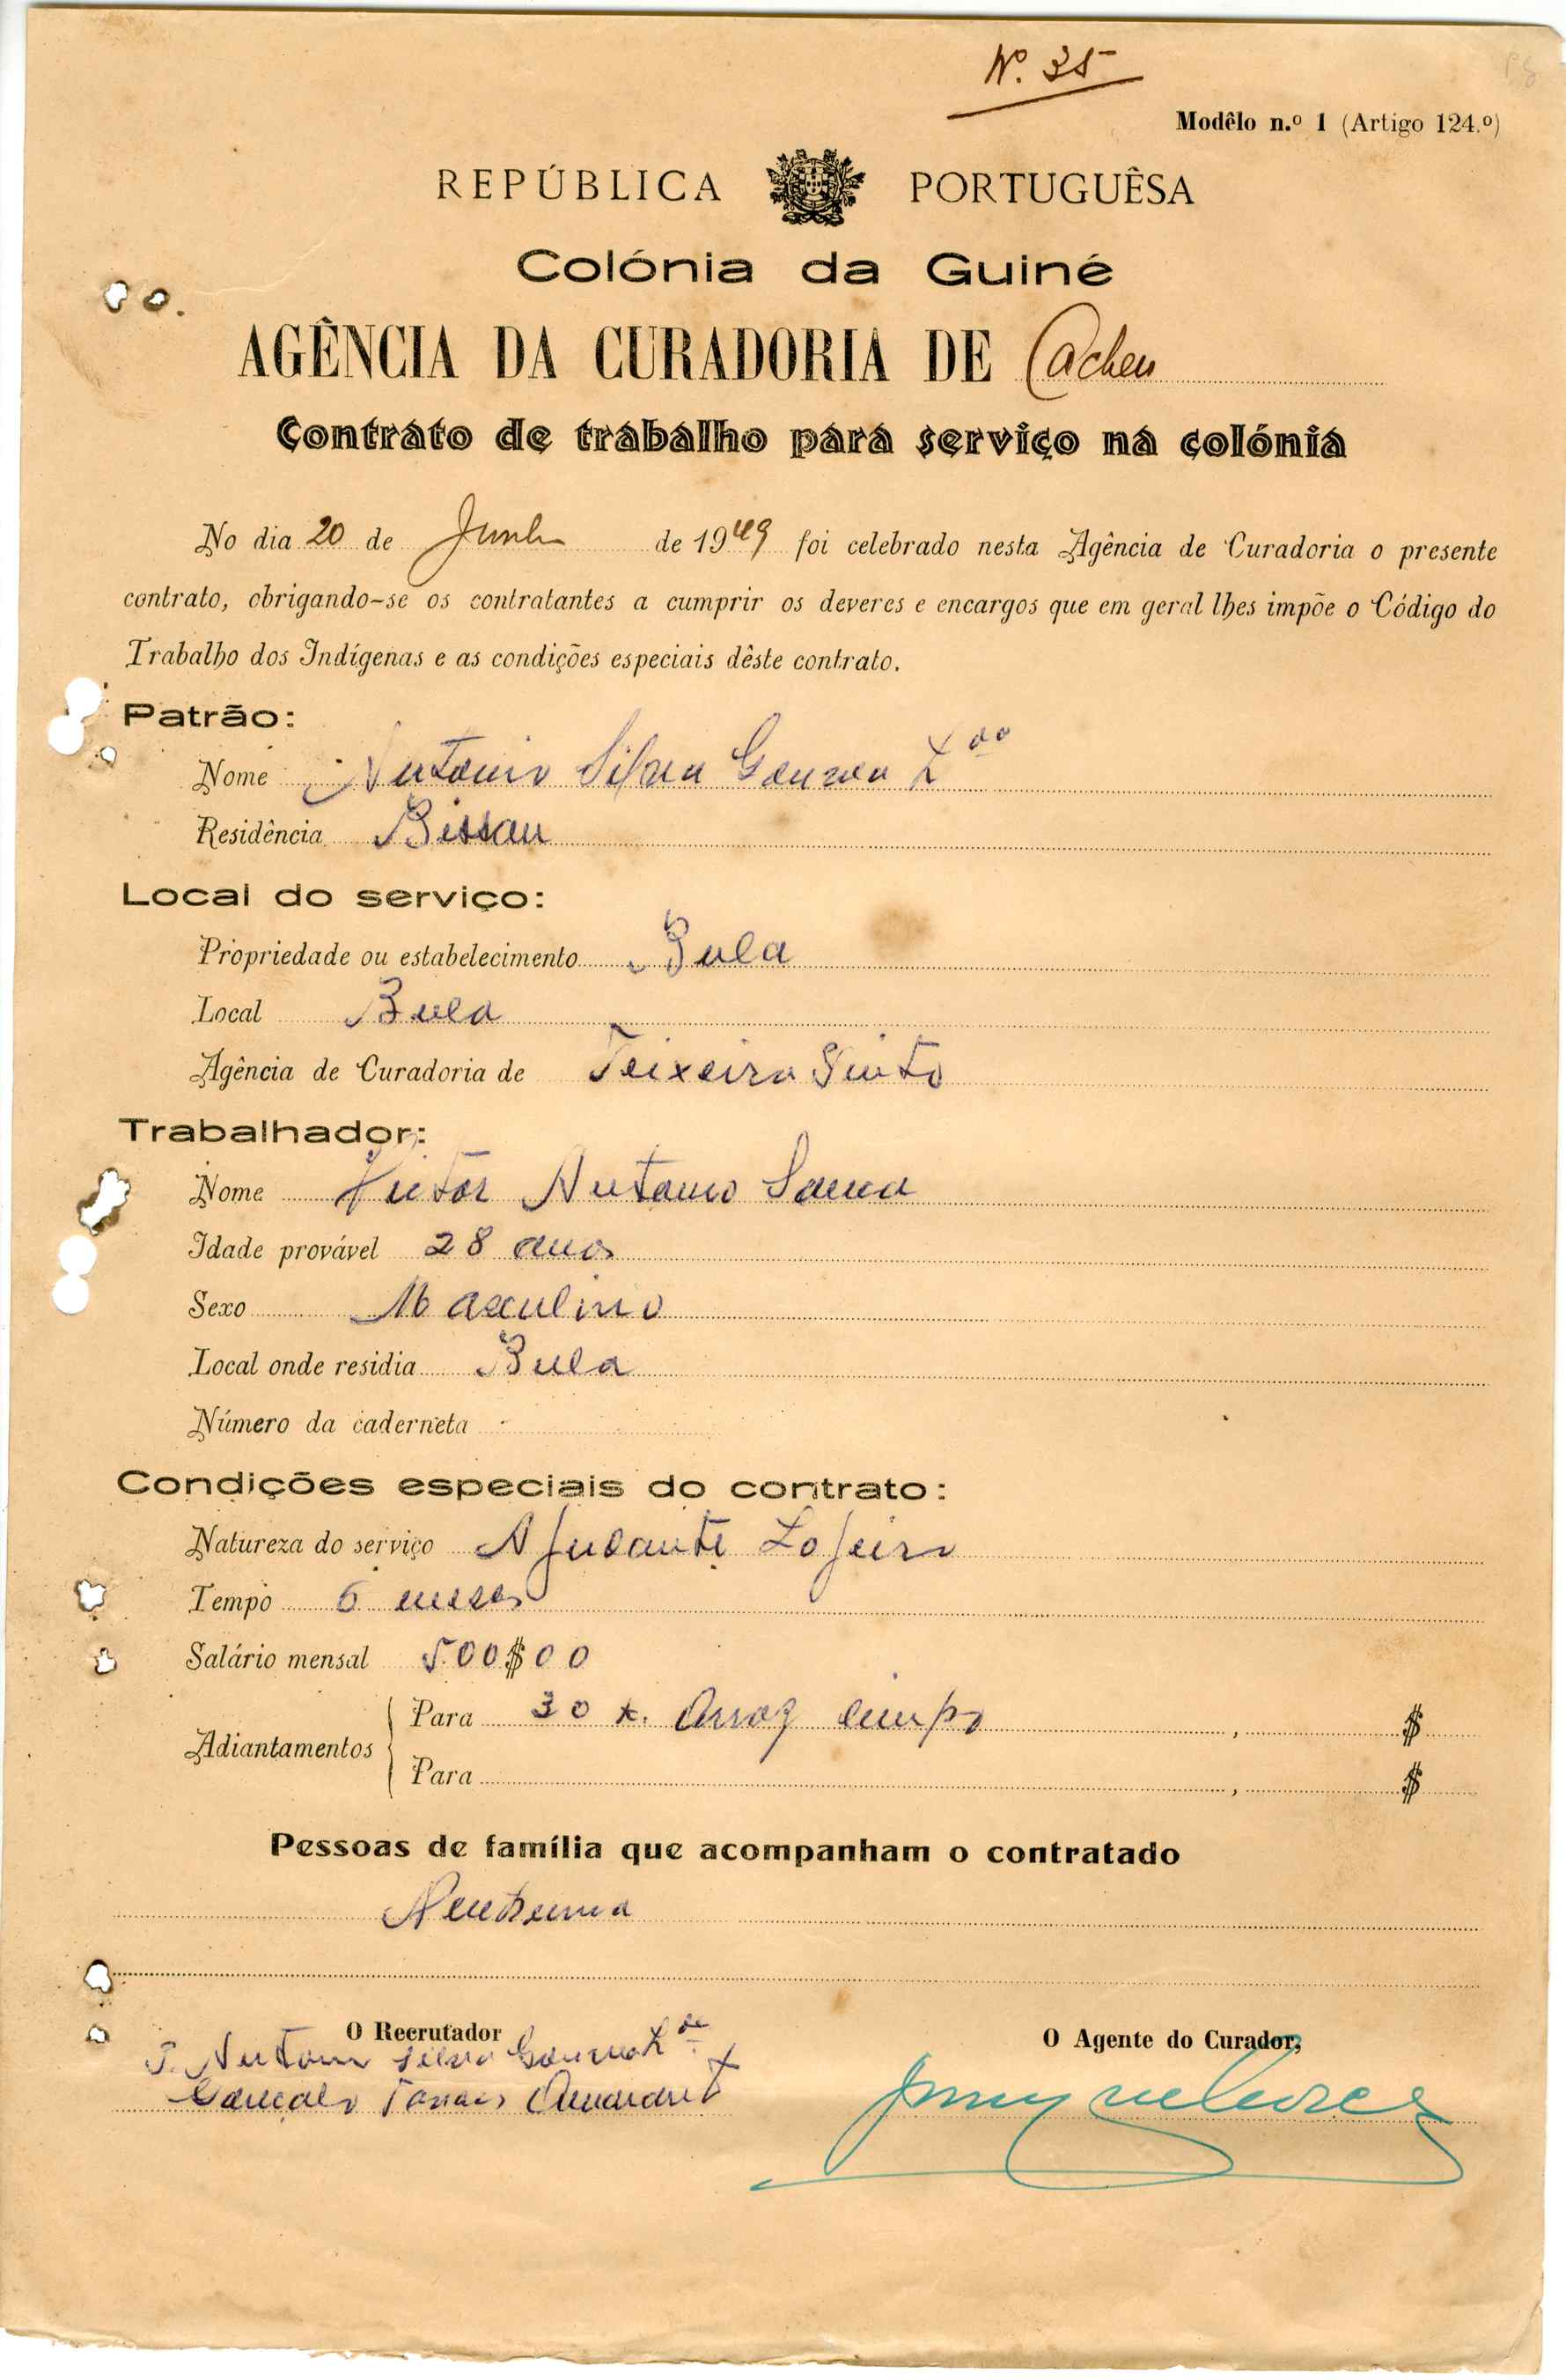 Nº. 35
Modêlo n.º 1 (Artigo 124.º)
REPÚBLICA PORTUGUÊSA
Colónia da Guiné
AGÊNCIA DA CURADORIA DE Cacheu
Contrato de trabalho para serviço na colónia
No dia 20 de Junho de 1949 foi celebrado nesta Agência de Curadoria o presente
contrato, obrigando-se os contratantes a cumprir os deveres e encargos que em geral lhes impõe o Código do
Trabalho dos Indígenas e as condições especiais dêste contrato.
Patrão:
Nome Antonio Silva Gouvea Lda
Residência Bissau
Local do serviço:
Propriedade ou estabelecimento Bula
Local Bula
Agência de Curadoria de Teixeira Pinto
Trabalhador:
Nome Victor Antonio
Idade provável 28 anos
Sexo Masculino
Local onde residia Bula
Número da caderneta
Condições especiais do contrato:
Natureza do serviço Ajudante Lojeiro
Tempo 6 meses
Salário mensal 500$00
Adiantamentos
Para 30 k. Arroz limpo , $
Para , $
Pessoas de família que acompanham o contratado
Nenhuma
O Recrutador O Agente do Curador,
Antonio Silva Gouvea Lda